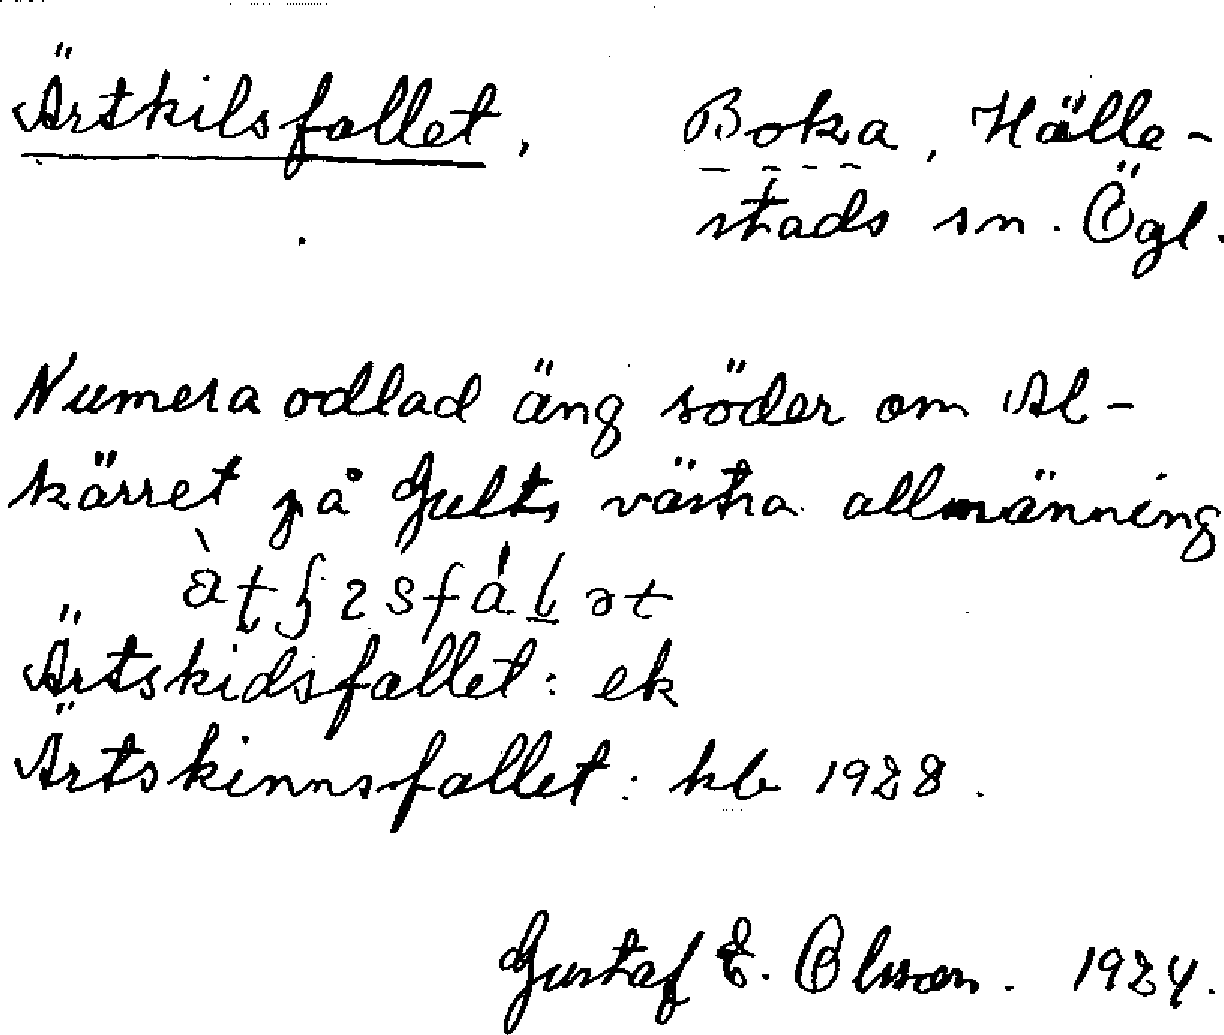 Ärtkilsfallet, Boksa, Hälle-
stads sn. Ögl.
Numera odlad äng söder om Al-
kärret på Gults västra allmänning
Ärtskidsfallet: ek
Ärtskinnsfallet: hb 1928.
Gustaf E. Olsson. 1924.